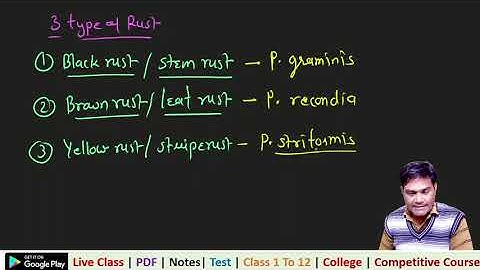 3 type of Rust
① Black rust / stem rust – P. graminis
② Brown rust / leaf rust – P. recondia
③ Yellow rust / struiperust – P. striformis
GET IT ON
Google Play
Live Class | PDF | Notes| Test | Class 1 To 12 | College | Competitive Course